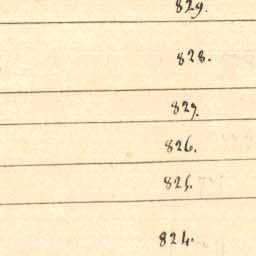 829.
828.
827.
826.
825.
824.